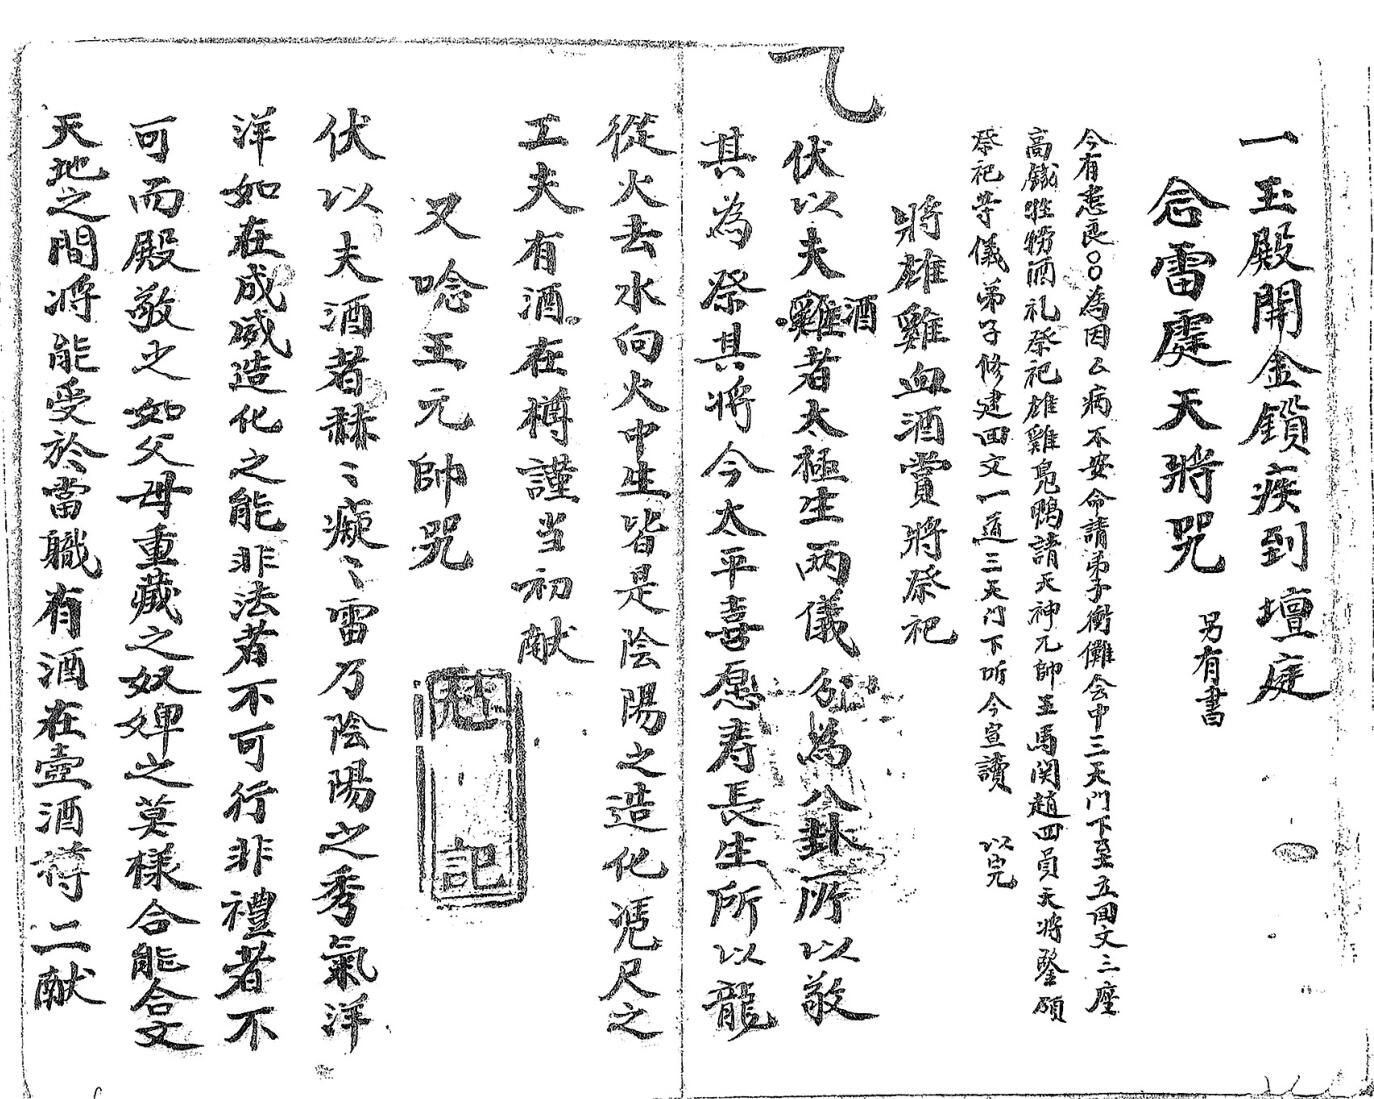 一玉殿開金鎖疾到壇庭
念雷霆天將咒
另有書
今有患良○○為因么病不安命請弟子衝儺会中三天門下至立回文三座
高錢牲犒酒礼祭祀雄雞鳬鴨請天神元帥王馬関趙四員天将鑒願
祭祀等儀弟子修建回文一道三天门下听今宣讀 以完
將雄雞血酒賞將祭祀
伏以夫雞者太極生两儀分為八卦所以敬
酒
其為祭其將今太平喜愿寿長生所以龍
從火去水向火中生皆是陰陽之造化凴尺之
工夫有酒在樽謹当初献
又唸王元帥咒
伏以夫酒者赫〻癡〻雷乃陰陽之秀氣洋
洋如在成威造化之能非法者不可行非禮者不
可而殿敬之如父母重藏之奴婢之莫樣合能合文
天地之間将能受於當職有酒在壺酒将二献
記